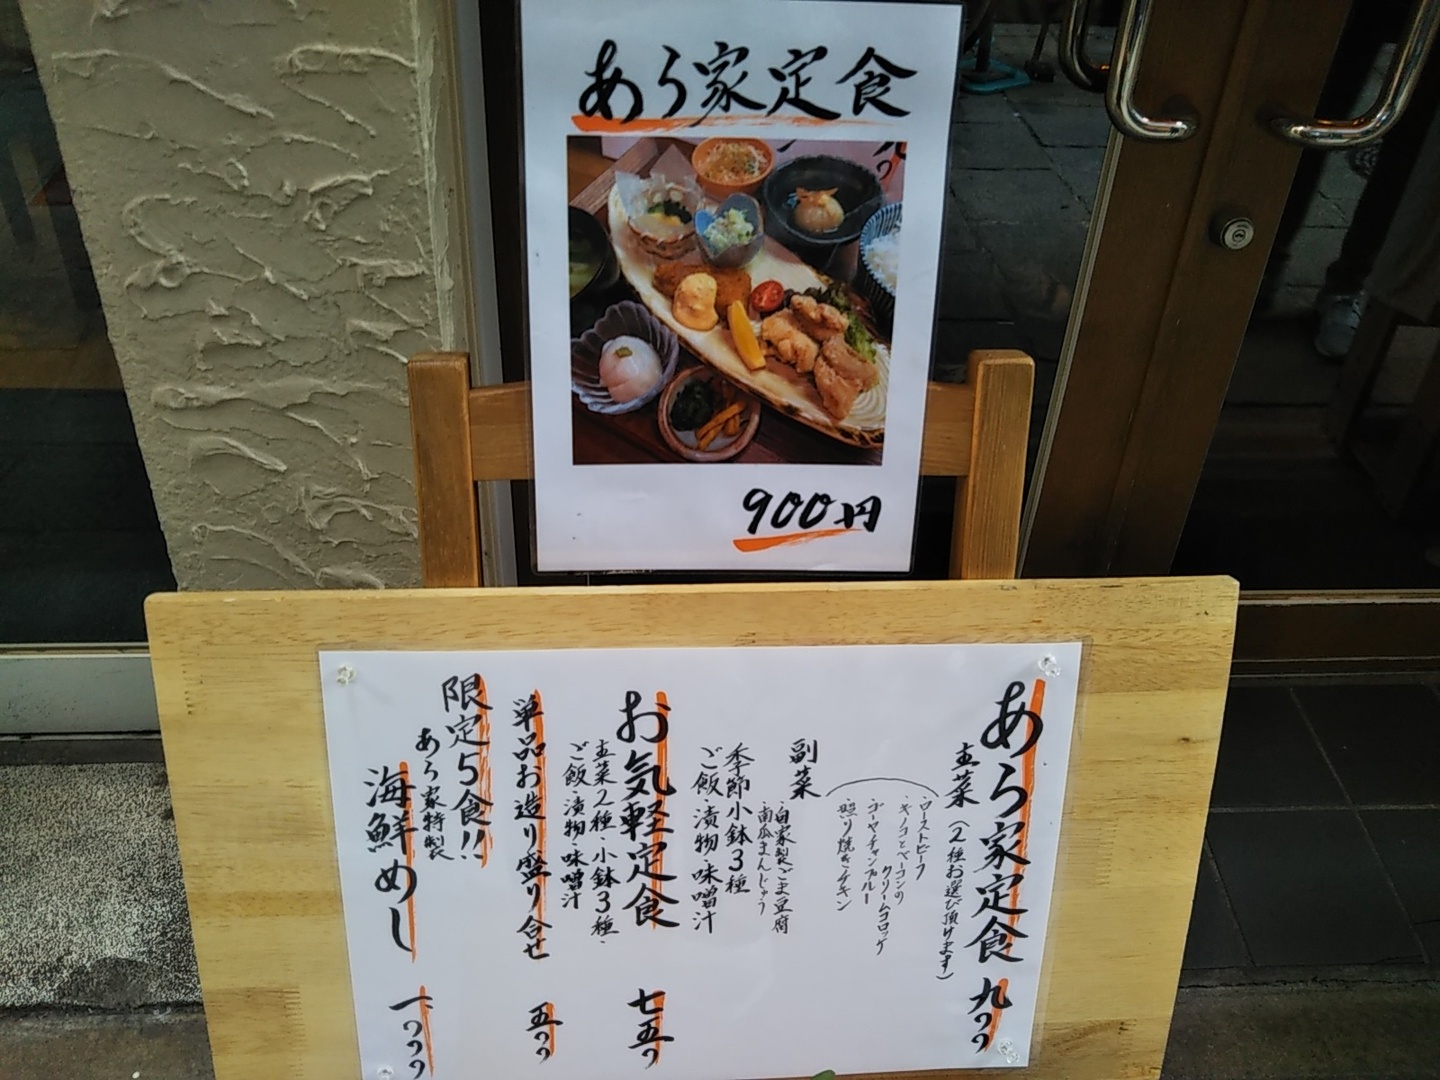 あら家定食
900円
あら家定食 九〇〇
主菜(2種お選び頂けます)
・ローストビーフ
・キノコとベーコンの
クリームコロッケ
・ゴーヤチャンプルー
・照り焼きチキン
副菜
・自家製ごま豆腐
・南瓜まんじゅう
季節小鉢3種
ご飯・漬物・味噌汁
お気軽定食 七五〇
主菜2種・小鉢3種・
ご飯・漬物・味噌汁
単品お造り盛り合せ 五〇〇
限定5食!!
あら家特製
海鮮めし 一〇〇〇